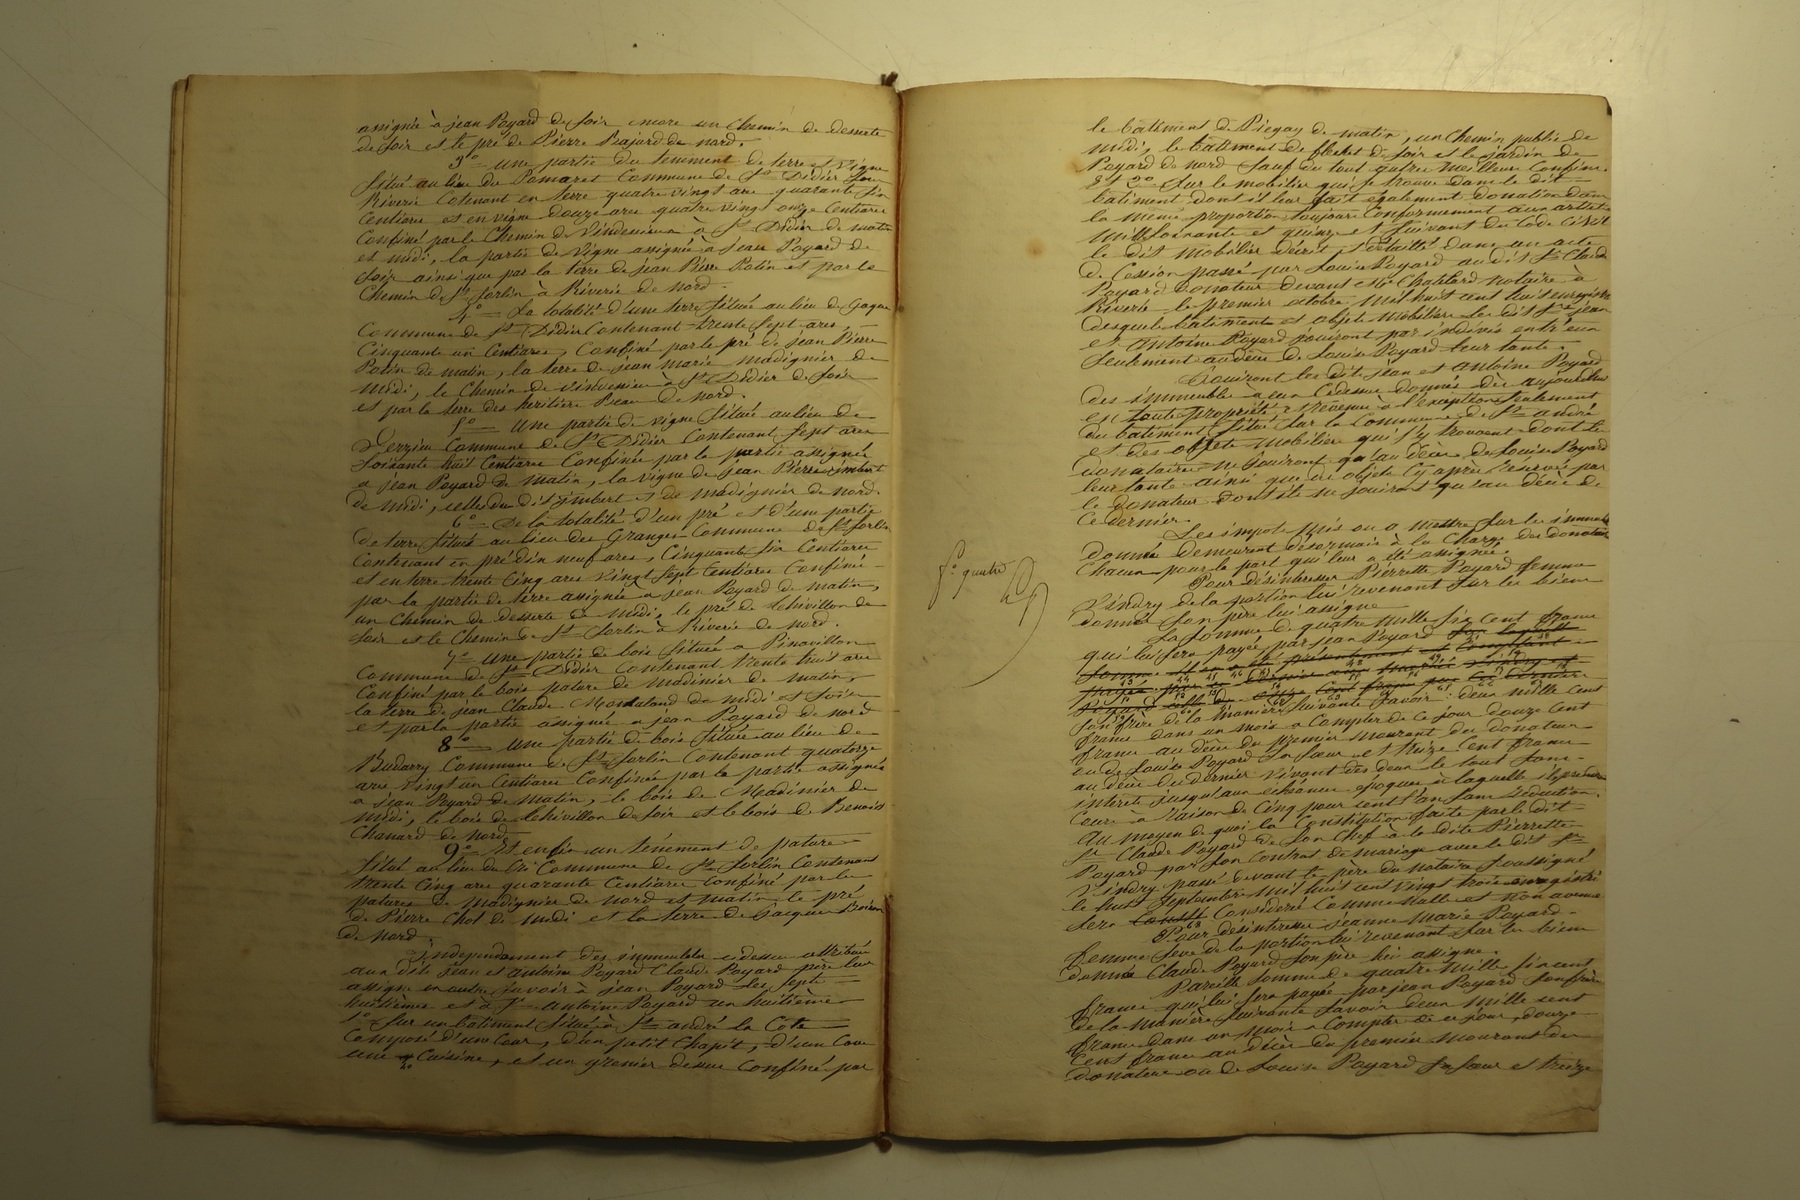 assignée à jean Poyard de soir encore un chemin de desserte
de soir et le pré de Pierre Bajard de nord.
3o Une partie du tenement de terre et vigne
Situé au lieu du Pomaret Commune de St Didier sous
Riverie Contenant en terre quatre vingt are quarante six
Centiares et en vigne douze ares quatre vingt onze Centiares
Confiné par le Chemin de Vindenieux à St Didier de matin
et midi, la partie de Vigne assignée à jean Poyard de
Soir ainsi que par la terre de jean Pierre Potin et par le
Chemin de St Sorlin à Riverie de nord.
4o La totalité d'une terre située au lieu de
Commune de St Didier Contenant trente Sept ares
Cinquante un Centiares, Confiné par le pré de jean Pierre
Potin de matin, la terre de jean marie madignier de
midi, le Chemin de vindenieux à St Didier de Soir
et par la terre des heritiers de nord.
5o Une partie de vigne située au lieu de
Commune de St Didier Contenant Sept ares
Soixante huit Centiares Confinée par la partie assignée
a jean Poyard de matin, la vigne de jean Pierre imbert
de midi, celle du dit imbert et du madignier de nord.
6o De la totalité d'un pré et d'une partie
de terre situés au lieu des Granges Commune de St Sorlin
Contenant en pré dix neuf ares, Cinquante six Centiares
et en terre trente Cinq ares vingt sept Centiares Confiné
par la partie de terre assignée a jean Poyard de matin,
un Chemin de desserte de midi, le pré de Chivillon de
Soir et le Chemin de St Sorlin à Riverie de nord.
7o Une partie de bois située a Pinavillon
Commune de St Didier Contenant trente huit ares
Confiné par le bois pature de madinier de matin,
la terre de jean Claude de midi et Soir
et par la partie assignée a jean Poyard de nord
8o Une partie de bois située au lieu de
Commune de St Sorlin Contenant quatorze
ares vingt un Centiares Confinée par la partie assignée
a jean Poyard de matin, le bois de Madinier de
midi, le bois de Chivillon de Soir et le bois de Benoit
Chanard de nord.
9o Et enfin un tenement de pature
Situé au lieu du Commune de St Sorlin Contenant
trente Cinq ares quarante Centiares Confiné par le
patures de madignier de nord et matin le pré
de Pierre Chol de midi et la terre de Jacques
de nord
Independament des immeubles cidessus attribués
aux dits jean et antoine Poyard Claude Poyard père leur
assigne en outre Savoir à jean Poyard les Sept
huitièmes et à St antoine Poyard un huitième
1o Sur un batiment Situé à St andré la Côte
Composé d'une Cour, d'un petit Chapit, d'un
une Cuisine, et un grenier dessus Confiné par
le batiment de Piegay de matin, un Chemin public de
midi, le batiment de de Soir et le jardin de
Poyard de nord Sauf du tout autres meilleurs Confins.
Et 2o Sur le mobilier qui se trouve dans le dit
batiment dont il leur fait également donation dans
la même proportion toujours Conformément aux articles
mille Soixante et quinze et Suivants du Code Civil
le dit mobilier décrit et détaillé dans un acte
de Cession passé par Louise Poyard au dit Sr Claude
Poyard donateur devant Me Chablard notaire à
Riverie le premier octobre mil huit cent huit enregistré
desquels batiments et objets mobiliers les dits Srs jean
et antoine Poyard jouiront par indivis entr'eux
Seulement au décès de Louise Poyard leur tante.
Jouiront les dits jean et antoine Poyard
des immeubles à eux Cidessus donnés dès aujourd'hui
en toute propriété et revenus à l'exception Seulement
du batiment Situé Sur la Commune de St andré
et des objets mobiliers qui S'y trouvent dont les
donataires ne jouiront qu'au décès de Louise Poyard
leur tante ainsi que des objets Cy après réservés par
le donateur dont ils ne jouiront qu'au décès de
Ce dernier.
Les impots mis ou a mettre Sur les immeubles
donnés demeurent désormais à la Charge des donataires
Chacun pour la part qui leur a été assignée.
Pour désintéresser Pierrette Poyard femme
Vindry de la portion lui revenant Sur les biens
donnés Son père lui assigne
La Somme de quatre mille Six Cent francs
qui lui Sera payée par jean Poyard
Son frère de la manière Suivante Savoir: deux mille cent
francs dans un mois a Compter de Ce jour douze Cent
francs au décès du premier mourant du donateur
ou de Louise Poyard Sa Soeur et treize Cent francs
au décès du dernier vivant des deux le tout Sans
intérêts jusqu'aux échéances époques à laquelle il prendra
Cours à raison de Cinq pour cent l'an Sans rétention.
Au moyen de quoi la Constitution faite par le dit
Sr Claude Poyard de Son Chef à la dite Pierrette
Poyard par Son Contrat de mariage avec le dit Sr
Vindry passé devant le père du notaire Soussigné
le huit Septembre mil huit cent vingt trois enregistré
Sera Considéré Comme nulle et non avenue
Pour désintéresser jeanne Marie Poyard
femme Seve de la portion lui revenant Sur les biens
donnés Claude Poyard Son père lui assigne.
Pareille Somme de quatre mille Six cent
francs qui lui Sera payée par jean Poyard Son frère
de la manière Suivante Savoir deux mille cent
francs dans un mois a Compter de ce jour, douze
Cent francs au décès du premier mourant du
donateur ou de Louise Poyard Sa Soeur et treize
fo quatre